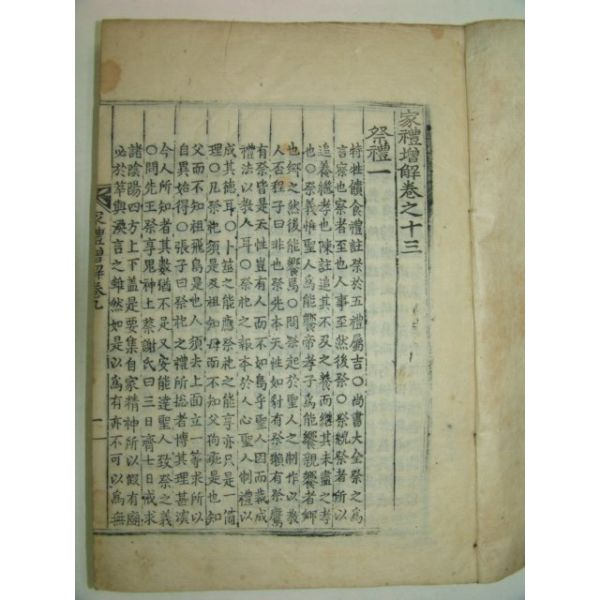 家禮增解卷之十三
祭禮一
特牲饋食禮註祭於五禮屬吉○尙書大全祭之爲
言察也察者至也人事至然後祭○祭統祭者所以
追養繼孝也陳註追其不及之養而繼其未盡之孝
也○祭義惟聖人爲能饗帝孝子爲能饗親饗者鄕
也鄕之然後能饗焉○問祭起於聖人之制作以敎
人否程子曰非也祭先本天性如豺有祭獺有祭鷹
有祭皆是天性豈有人而不如鳥乎聖人因而裁成
禮法以敎人耳○祭祀之報本於人心聖人制禮以
成其德耳○卜筮之能應祭祀之能享亦只是一箇
理○凡祭祀須是及祖知母而不知父狗彘是也知
父而不知祖飛鳥是也人須去上面立一等求所以
自異始得○張子曰祭祀之禮所揔者博其理甚深
今人所知者其數猶不足又安能達聖人致祭之義
○問先王祭享鬼神上蔡謝氏曰三日齊七日戒求
諸陰陽四方上下蓋是要集自家精神所以假有廟
必於萃與渙言之雖然如是以爲有亦不可以爲無
家禮增解卷九
一